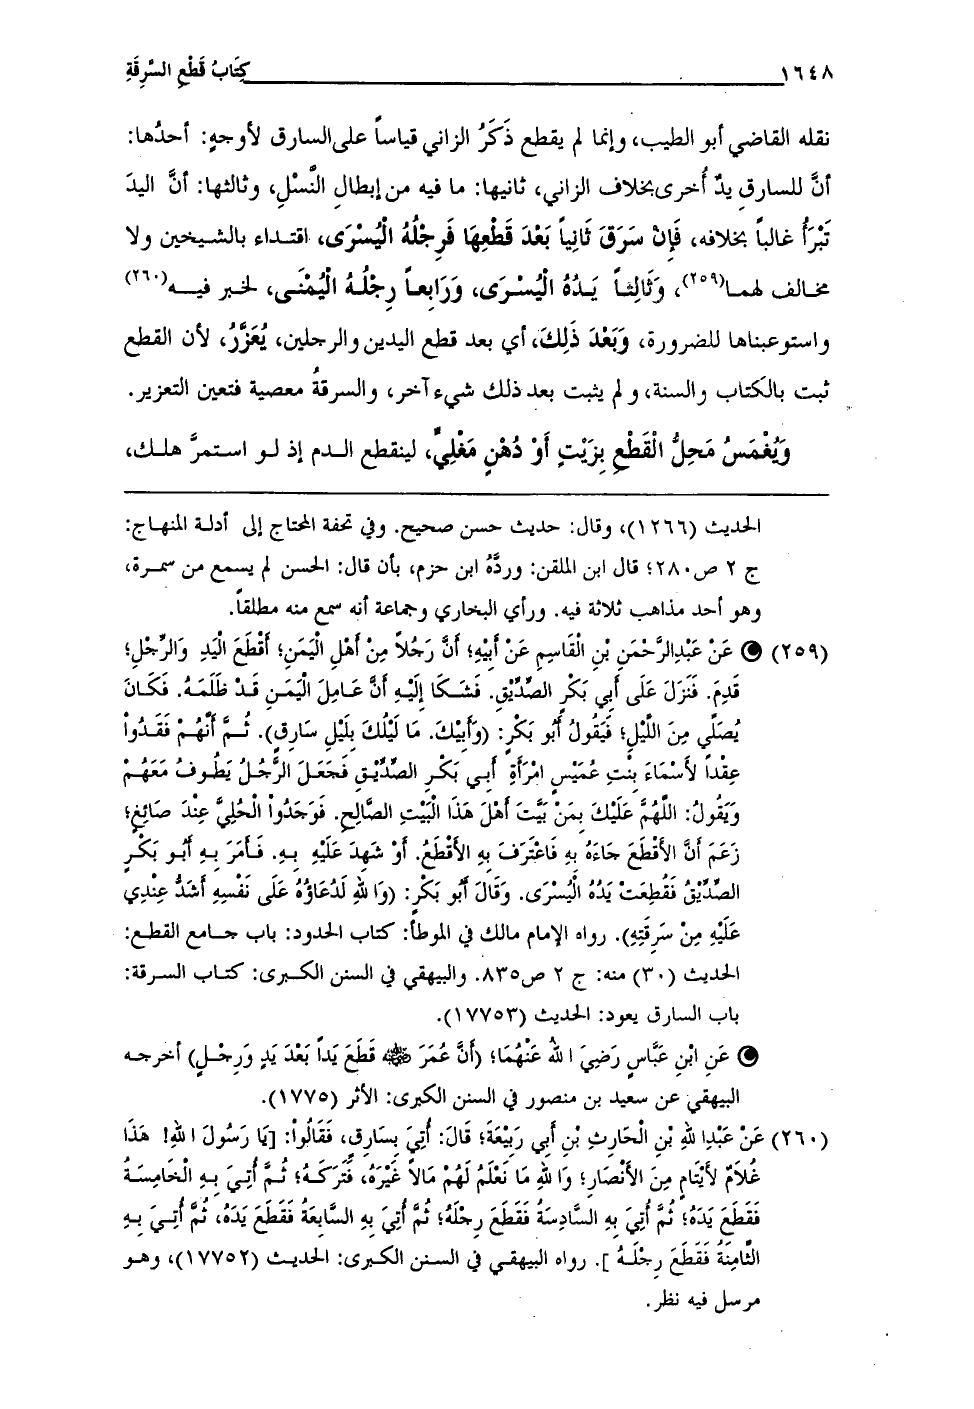 ١٦٤٨ كِتَابُ قَطْعِ السَّرِقَةِ
نقله القاضي أبو الطيب، وإنما لم يقطع ذَكَرُ الزاني قياساً على السارق لأوجهٍ: أحدُها:
أنَّ للسارق يدٌ أُخرى بخلاف الزاني، ثانيها: ما فيه من إبطالِ النَّسْلِ، وثالثها: أنَّ اليدَ
تَبْرَأُ غالباً بخلافه، فَإِنْ سَرَقَ ثَانِياً بَعْدَ قَطْعِهَا فَرِجْلُهُ الْيُسْرَى، اقتداء بالشيخين ولا
مخالف لهما(٢٥٩)، وَثَالِثاً يَدُهُ الْيُسْرَى، وَرَابِعاً رِجْلُهُ الْيُمْنَى، لخبر فيه(٢٦٠)
واستوعبناها للضرورة، وَبَعْدَ ذَلِكَ، أي بعد قطع اليدين والرجلين، يُعَزَّرُ، لأن القطع
ثبت بالكتاب والسنة، ولم يثبت بعد ذلك شيء آخر، والسرقةُ معصية فتعين التعزير.
وَيُغْمَسُ مَحِلُّ الْقَطْعِ بِزَيْتٍ أَوْ دُهْنٍ مَغْلِيٍّ، لينقطع الدم إذ لو استمرَّ هلك،
الحديث (١٢٦٦)، وقال: حديث حسن صحيح. وفي تحفة المحتاج إلى أدلة المنهاج:
ج ٢ ص٢٨٠؛ قال ابن الملقن: وردَّهُ ابن حزم، بأن قال: الحسن لم يسمع من سمرة،
وهو أحد مذاهب ثلاثة فيه. ورأي البخاري وجماعة أنه سمع منه مطلقاً.
(٢٥٩) عَنْ عَبْدِالرَّحْمَنِ بْنِ الْقَاسِمِ عَنْ أَبِيْهِ؛ أَنَّ رَجُلاً مِنْ أَهْلِ الْيَمَنِ؛ أَقْطَعَ الْيَدِ وَالرِّجْلِ؛
قَدِمَ. فَنَزَلَ عَلَى أَبِي بَكْرٍ الصِّدِّيْقِ. فَشَكَا إِلَيْهِ أَنَّ عَامِلَ الْيَمَنِ قَدْ ظَلَمَهُ. فَكَانَ
يُصَلِّي مِنَ اللَّيْلِ؛ فَيَقُولُ أَبُو بَكْرٍ: (وَأَبِيْكَ. مَا لَيْلُكَ بِلَيْلِ سَارِقٍ). ثُمَّ أَنَّهُمْ فَقَدُواْ
عِقْداً لأَسْمَاءَ بِنْتِ عُمَيْسٍ امْرَأَةِ أَبِي بَكْرٍ الصِّدِّيْقِ فَجَعَلَ الرَّجُلُ يَطُوفُ مَعَهُمْ
وَيَقُولُ: اللَّهُمَّ عَلَيْكَ بِمَنْ بَيَّتَ أَهْلَ هَذَا الْبَيْتِ الصَّالِحِ. فَوَجَدُواْ الْحُلِيَّ عِنْدَ صَائِغٍ؛
زَعَمَ أَنَّ الأَقْطَعَ جَاءَهُ بِهِ فَاعْتَرَفَ بِهِ الأَقْطَعُ. أَوْ شُهِدَ عَلَيْهِ بِهِ. فَأَمَرَ بِهِ أَبُو بَكْرٍ
الصِّدِّيْقُ فَقُطِعَتْ يَدُهُ الْيُسْرَى. وَقَالَ أَبُو بَكْرٍ: (وَاللهِ لَدُعَاؤُهُ عَلَى نَفْسِهِ أَشَدُّ عِنْدِي
عَلَيْهِ مِنْ سَرِقَتِهِ). رواه الإمام مالك في الموطأ: كتاب الحدود: باب جامع القطع:
الحديث (٣٠) منه: ج ٢ ص٨٣٥. والبيهقي في السنن الكبرى: كتاب السرقة:
باب السارق يعود: الحديث (١٧٧٥٣).
عَنِ ابْنِ عَبَّاسٍ رَضِيَ اللهُ عَنْهُمَا؛ (أَنَّ عُمَرَ ﷺ قَطَعَ يَداً بَعْدَ يَدٍ وَرِجْلٍ) أخرجه
البيهقي عن سعيد بن منصور في السنن الكبرى: الأثر (١٧٧٥).
(٢٦٠) عَنْ عَبْدِاللهِ بْنِ الْحَارِثِ بْنِ أَبِي رَبِيْعَةَ؛ قَالَ: أُتِيَ بِسَارِقٍ، فَقَالُواْ: [يَا رَسُولَ اللهِ! هَذَا
غُلاَمٌ لأَيْتَامٍ مِنَ الأَنْصَارِ؛ وَاللهِ مَا نَعْلَمُ لَهُمْ مَالاً غَيْرَهُ، فَتَرَكَهُ؛ ثُمَّ أُتِيَ بِهِ الْخَامِسَةُ
فَقَطَعَ يَدَهُ؛ ثُمَّ أُتِيَ بِهِ السَّادِسَةُ فَقَطَعَ رِجْلَهُ؛ ثُمَّ أُتِيَ بِهِ السَّابِعَةُ فَقَطَعَ يَدَهُ، ثُمَّ أُتِيَ بِهِ
الثَّامِنَةُ فَقَطَعَ رِجْلَهُ]. رواه البيهقي في السنن الكبرى: الحديث (١٧٧٥٢)، وهو
مرسل فيه نظر.